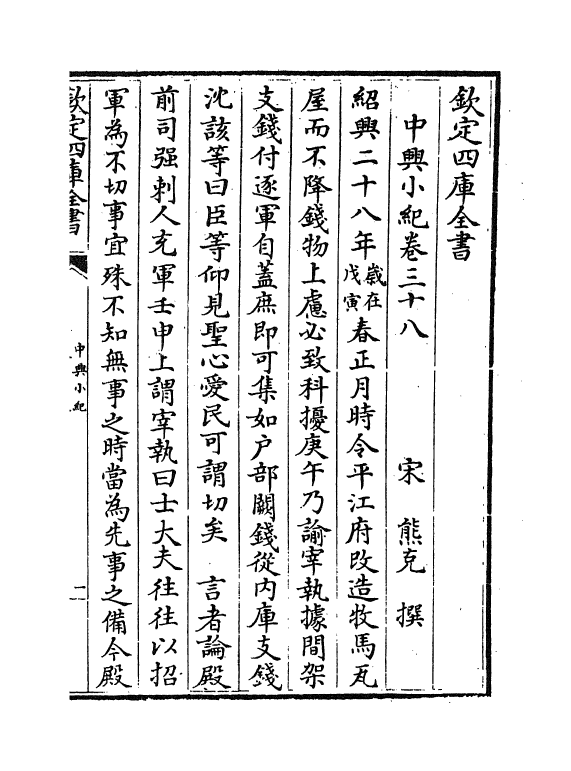 欽定四庫全書
中興小紀卷三十八
宋 熊克 撰
紹興二十八年歲在戊寅春正月時令平江府改造牧馬瓦
屋而不降錢物上慮必致科擾庚午乃諭宰執據間架
支錢付逐軍自蓋庶即可集如户部闕錢從内庫支錢
沈該等曰臣等仰見聖心愛民可謂切矣 言者論殿
前司强刺人充軍壬申上謂宰執曰士大夫往往以招
軍為不切事宜殊不知無事之時當為先事之備今殿
欽定四庫全書
中興小紀